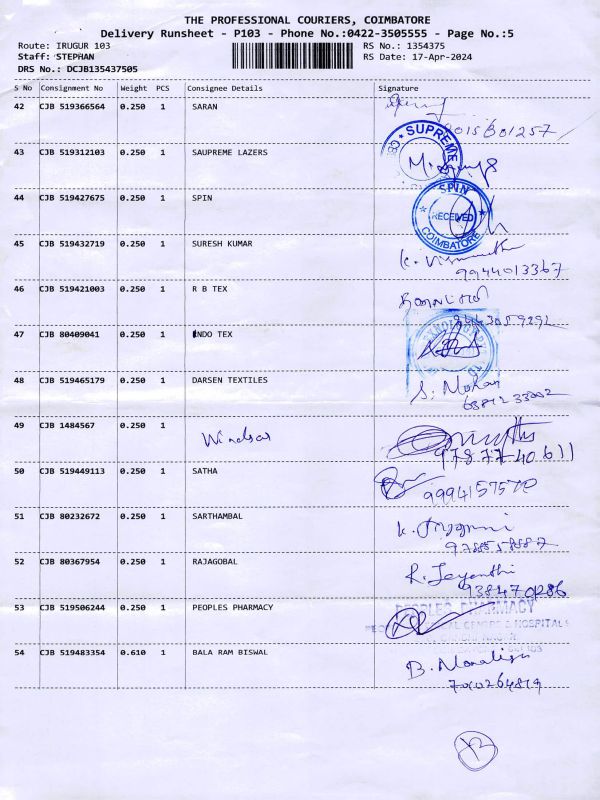 THE PROFESSIONAL COURIERS, COIMBATORE
Delivery Runsheet - P103 - Phone No.:0422-3505555 - Page No.:5
Route: IRUGUR 103
RS No.: 1354375
Staff: STEPHAN
RS Date: 17-Apr-2024
DRS No.: DCJB135437505
S No Consignment No Weight PCS Consignee Details Signature
42 CJB 519366564 0.250 1 SARAN
43 CJB 519312103 0.250 1 SAUPREME LAZERS
SUPREME
44 CJB 519427675 0.250 1 SPIN
SPIN
RECEIVED
COIMBATORE
45 CJB 519432719 0.250 1 SURESH KUMAR
9944013367
46 CJB 519421003 0.250 1 R B TEX
47 CJB 80409041 0.250 1 INDO TEX
48 CJB 519465179 0.250 1 DARSEN TEXTILES
S. Mohan
49 CJB 1484567 0.250 1 Windsor
9787740611
50 CJB 519449113 0.250 1 SATHA
9994157570
51 CJB 80232672 0.250 1 SARTHAMBAL
52 CJB 80367954 0.250 1 RAJAGOBAL
R. Jeyanthi
9384470286
53 CJB 519506244 0.250 1 PEOPLES PHARMACY
PEOPLES PHARMACY
54 CJB 519483354 0.610 1 BALA RAM BISWAL